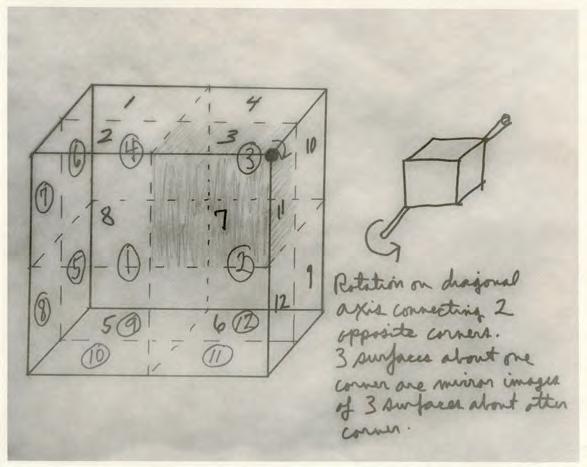 1
4
2
3
⑥
④
③
2
10
⑦
8
7
11
⑤
①
②
9
⑧
12
5
⑨
6
⑫
⑩
⑪
Rotation on diagonal
axis connecting 2
opposite corners.
3 surfaces about one
corner are mirror images
of 3 surfaces about other
corner.